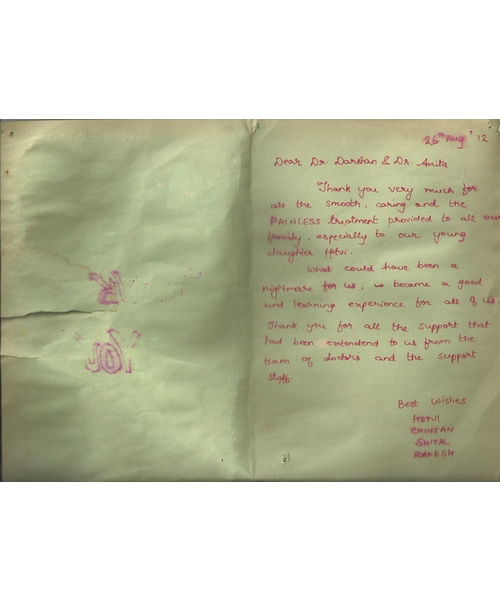 26th Aug '12
Dear Dr. Darshan & Dr. Anita
Thank you very much for
all the smooth, caring and the
PAINLESS treatment provided to all our
family, especially to our young
daughter Hetvi.
What could have been a
nightmare for us, us became a good
and learning experience for all of us.
Thank you for all the support that
had been extendend to us from the
team of doctors and the support
staff.
Best Wishes
HETVI
CHINTAN
SHITAL
RAKESH